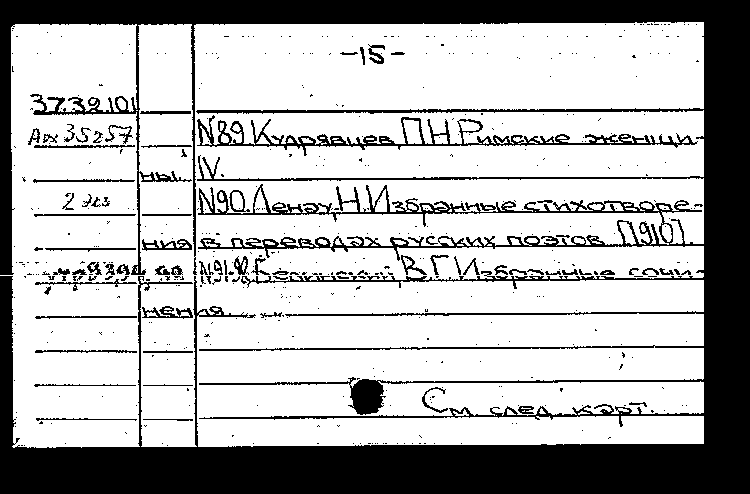 -15-
37.39.101
Арх 35257 N89.Кудрявцев, П.Н.Римские женщи-
ны. IV.
2 экз N90.Ленау,Н.Избранные стихотворе-
ния в переводах русских поэтов. [1910].
N91-98.Белинский,В.Г.Избранные сочи-
нения.
См. след. карт.